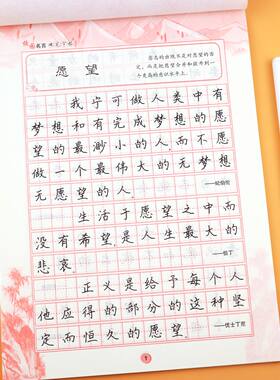 名言
愿望
意志的出现不是对愿望的否
定，而是把愿望合并和提升到一
个更高的意识水平上。
我宁可做人类中有
梦想和有完成梦想的愿
望的最渺小的人，而不愿
做一个最伟大的无梦想、
无愿望的人。
——纪伯伦
生活于愿望之中而
没有希望，是人生最大的
悲哀。
——但丁
正义是给予每个人
他应得的部分的这种坚
定而恒久的愿望。
——优士丁尼
1